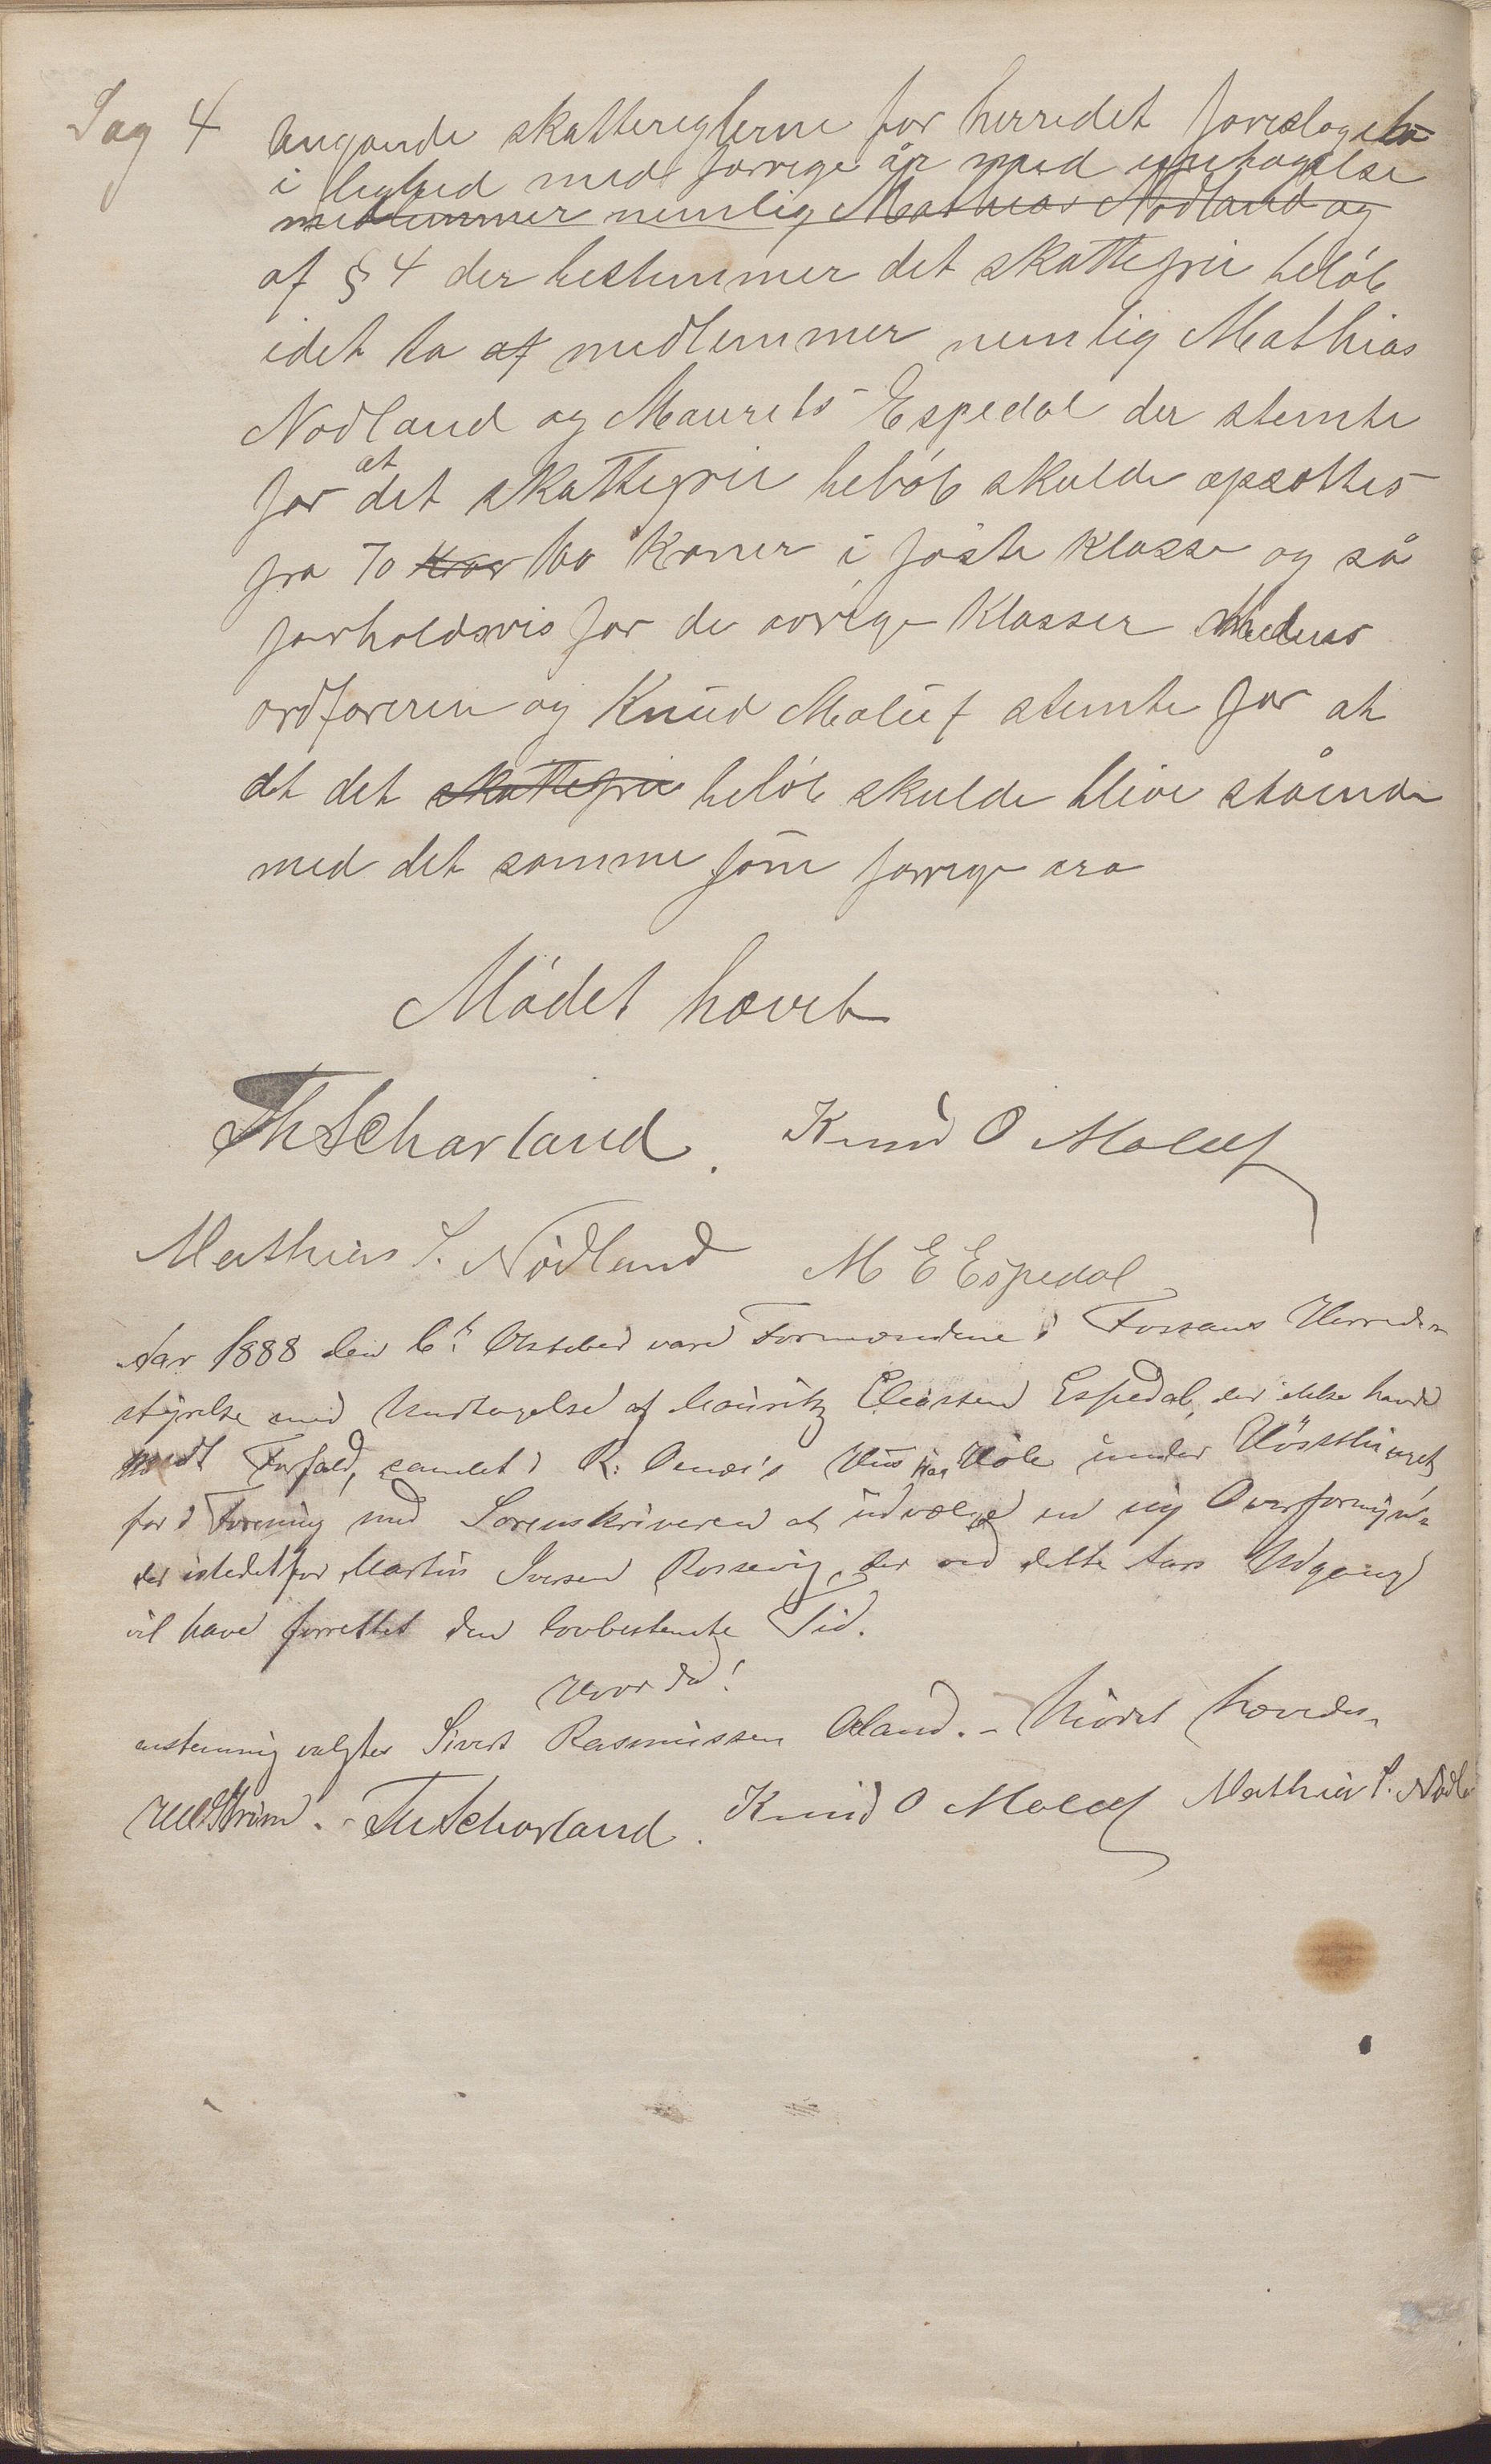 Sag 4 angående skattereglerne for herredet foresloges
i lighed med forrige år med undtagelse
medlemmer nemlig Mathias Nødland og
af § 4 der bestemmer det skattefrie beløb
idet to af medlemmer nemlig Mathias
Nødland og Maurets Espedal der stemte
for at det skattefrie beløb skulde opsættes
fra 70 Kror 100 Kroner i føste Klasse og så
forholdsvis for de øvrige Klasser Medens
ordføreren og Knud Meluf stemte for at
dt det skattefrie beløb skulde blive stående
med det samme som forrige års
Mødet hævet
Th Scharland. Knud O Meluf
Mathias S. Nødland M E Espedal
Aar 1888 den 6t Oktober vare Formændene i Fossans Herreds=
styrelse med Undtagelse af Mouritz Eliassen Espedal, der ikke havde
meldt Forfald, samlet i R. Oenæs's Hus paa Høle under Høstthinget,
for i Forening med Sorenskriveren at udvælge en ny Overformyn=
der istedetfor Martin Iversen Rossevig, der ved dette Aars Udgang
vil have forrettet den lovbestemte Tid.
Hvorda!
enstemmig valgtes Sivert Rasmussen Øland. - Mødet hævedes.
Th Scharland. Knud O Meluf Mathias S. Nødl